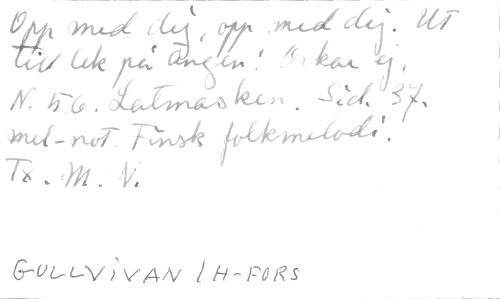 Opp med dig, opp med dig. Ut
till lek på ängen! Orkar ej.
N. 56. Latmasken. Sid. 37.
mel-not. Finsk folkmelodi.
Tx. M. V.
GULLVIVAN / H-FORS